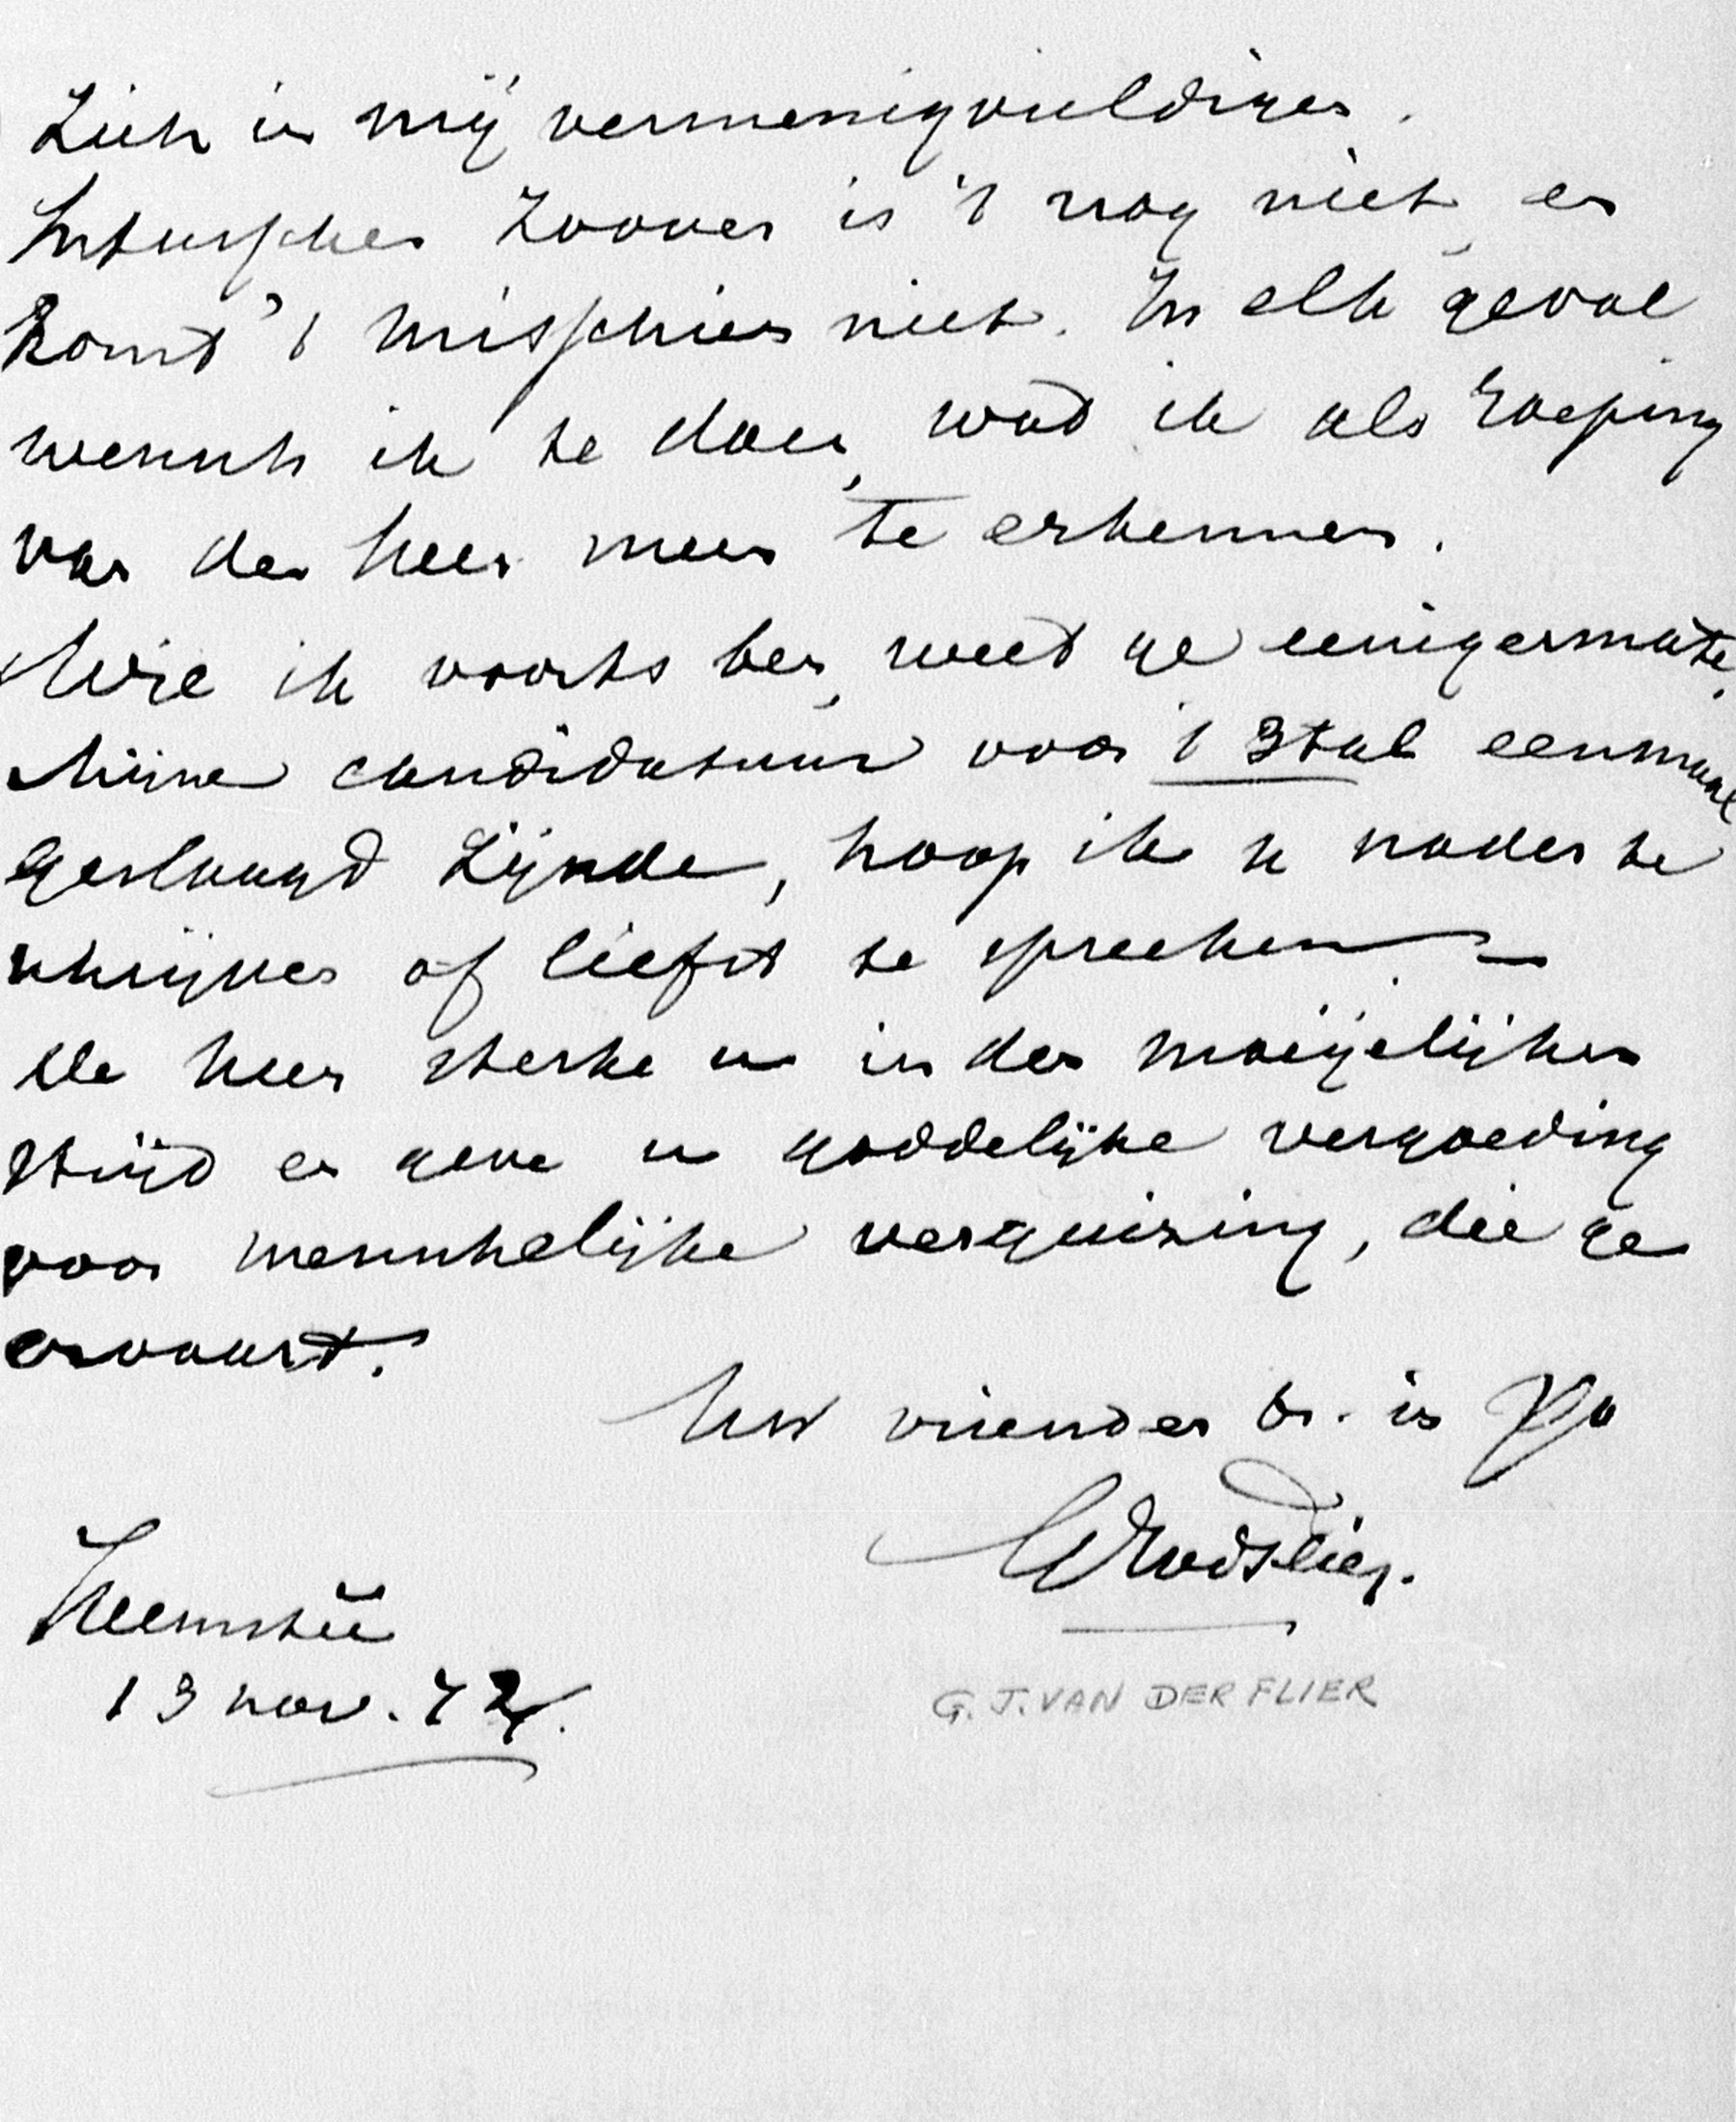 zich in mij vermenigvuldigen.
Intusschen zoover is 't nog niet, en
komt 't misschien niet. In elk geval
wensch ik te doen, wat ik als roeping
van den Heer meen te erkennen.
Wie ik voorts ben, weet ge eenigermate.
Mijne candidatuur voor 't 3tal eenmaal
geslaagd zijnde, hoop ik u nader te
schrijven of liefst te spreeken. —
De Heer sterke u in den moeijelijken
strijd en geve u goddelijke vergoeding
voor menschelijke verguizing, die ge
ervaart.
Uw vriend en br. in
GJvdFlier.
Heemstee
13 nov. 72.
G. J. VAN DER FLIER